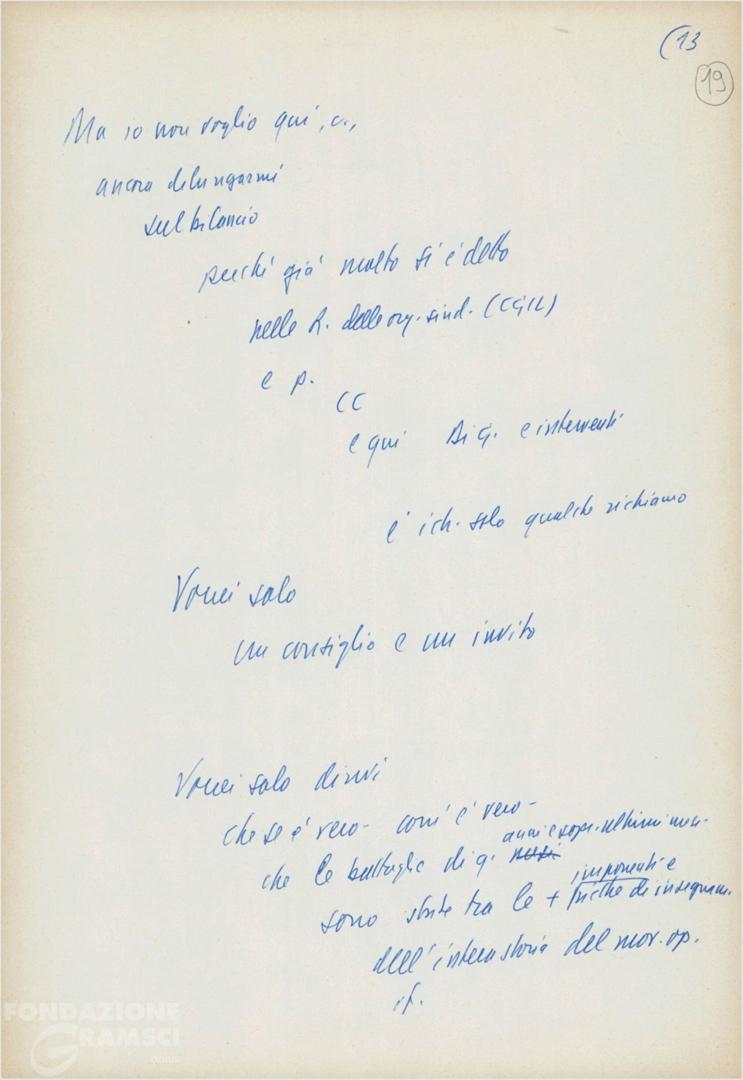 (13
19
Ma io non voglio qui, c.,
ancora dilungarmi
sul bilancio
perché già molto si è detto
nelle R. delle org. sind. (CGIL)
e p.
CC
e qui Di G. e interventi
e ich. solo qualche richiamo
Vorrei solo
un consiglio e un invito
Vorrei solo dirvi
che se è vero - com'è vero -
anni e sopr. ultimi mesi
che le battaglie di q. mesi
imponenti e
sono state tra le + ricche di insegnam.
dell'intera storia del mov. op.
it.
FONDAZIONE
GRAMSCI
onlus